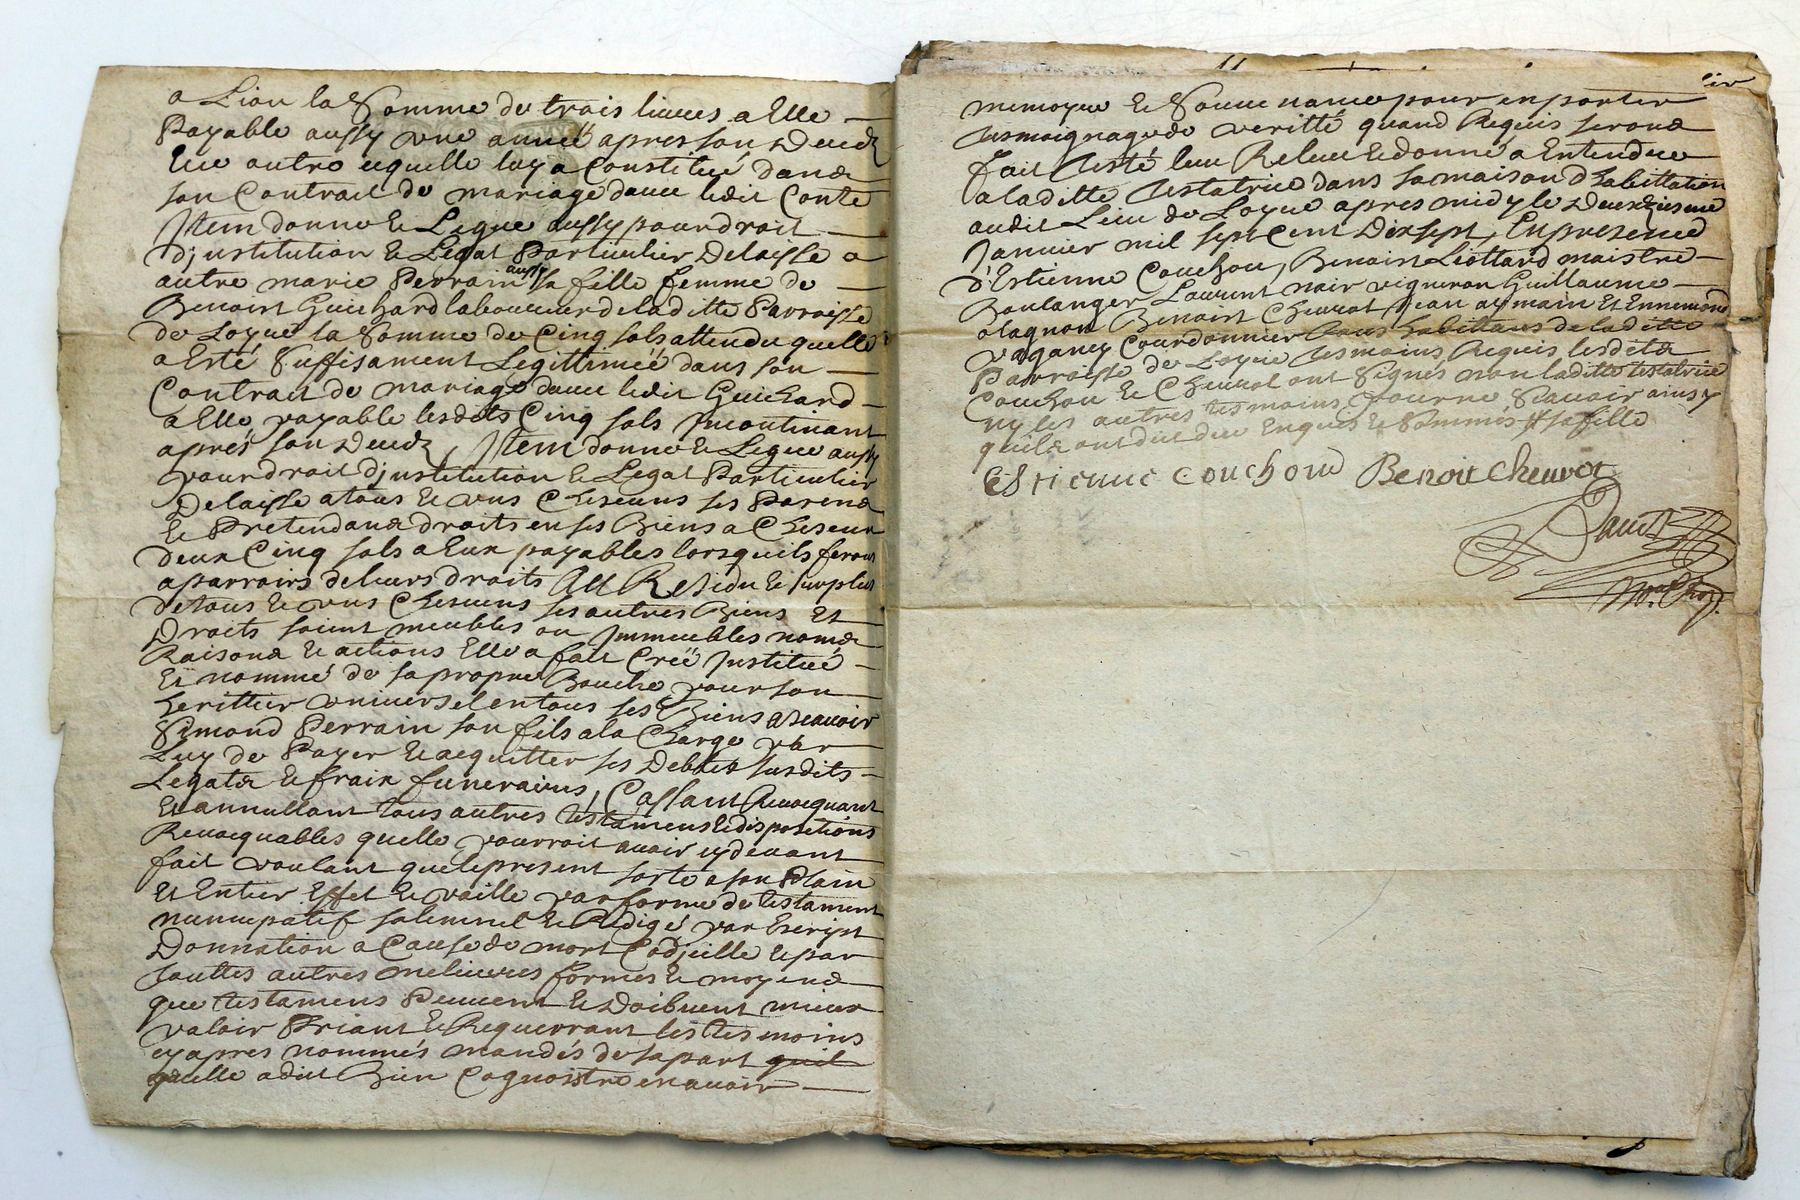 a Lion la Somme de trois liures a Elle
Payable aussy une année apres son Decedz
Et outre cequelle luy a Constitué dans
son Contrait de mariage dauec ledit Conte
Jtem donne & Legue aussy pour droit
d'justitution & Legat Particulier Delaisse a
autre marie Perrain aussy sa fille femme de
Benoist Guichard laboureur de laditte Parroisse
de Loyre la Somme de Cinq sols attendu quelle
a Esté Suffisament Legittimée dans son
Contrait de mariage dauec ledit Guichard
a Elle payable lesdits Cinq sols Jncontinant
aprés son Decedz, Jtem donne & Legue aussy
pour droit d'justitution & Legat Particulier
Delaisse a tous & uns Chescuns ses Parens
& Pretendans droits en ses Biens a Chescun
deux Cinq sols a Eux payables lorsquils feront
aparroirs de leurs droits Au Residu & surplus
de tous & uns Chescuns ses autres Biens Et
Droits soient meubles ou Jmmeubles noms
Raisons & actions Elle a fait Créé Justitué
Et nommé de sa propre Bouche pour son
heritier uniuersel en tous ses Biens ascauoir
Simond Perrain son fils a la Charge par
Luy de Payer & acquitter ses Debtes susdits
Legats & fraix funeraires, Cassant Reuocquant
Et annullant tous autres testamens & dispositions
Reuocquables quelle pourroit auoir cy deuant
fait voulant que le present sorte a son Plain
Et Entier Effet & vaille par forme de testament
nuncupatif solemnel & Redigé par Escript
Donnation a Cause de mort Codicille & par
touttes autres melieures formes & moyens
que testamens Peuuent & Doibuent mieux
valoir Priant & Requerrant les tesmoins
cy apres nommés mandés de sa part quil
quelle a dit Bien Cognoistre en auoir
memoyre & Souuenance pour en porter
tesmoignage de veritté quand Requis seront
fait Testé leu Releu & donné a Entendre
a laditte Testatrice dans sa maison d'habittation
audit Lieu de Loyre apres midy le Deuxziesme
Januier mil sept Cent Dixsept, En presence
d'Estienne Couchou, Benoist Liottard maistre
Boulanger Laurent noir vigneron Guillaume
olagnon Benoist Cheurot, Jean aymain Et Ennemond
vaganey Courdonnier tous habittans de laditte
Parroisse de Loyre tesmoins Requis lesdits
Couchou & Cheurot ont Signés non laditte testatrice
ny les autres tesmoins Pour ne Scauoir ainsy
quils ont dit deu Enquis & Sommés # sa fille
Estienne couchoud Benoit Cheurot